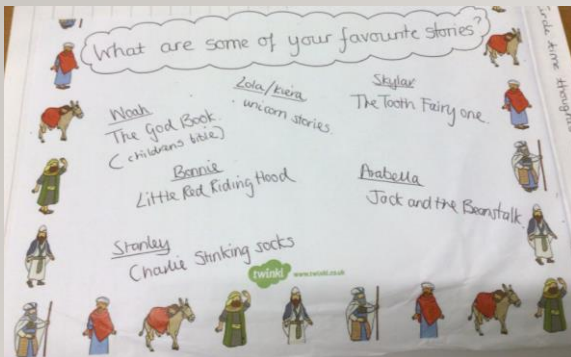 What are some of your favourite stories?
Circle time thoughts
Noah
The God Book.
(childrens bible)
Lola/Kiera
unicorn stories.
Skylar
The Tooth Fairy one.
Bonnie
Little Red Riding Hood
Arabella
Jack and the Beanstalk
Stanley
Charlie Stinking socks
twinkl www.twinkl.co.uk